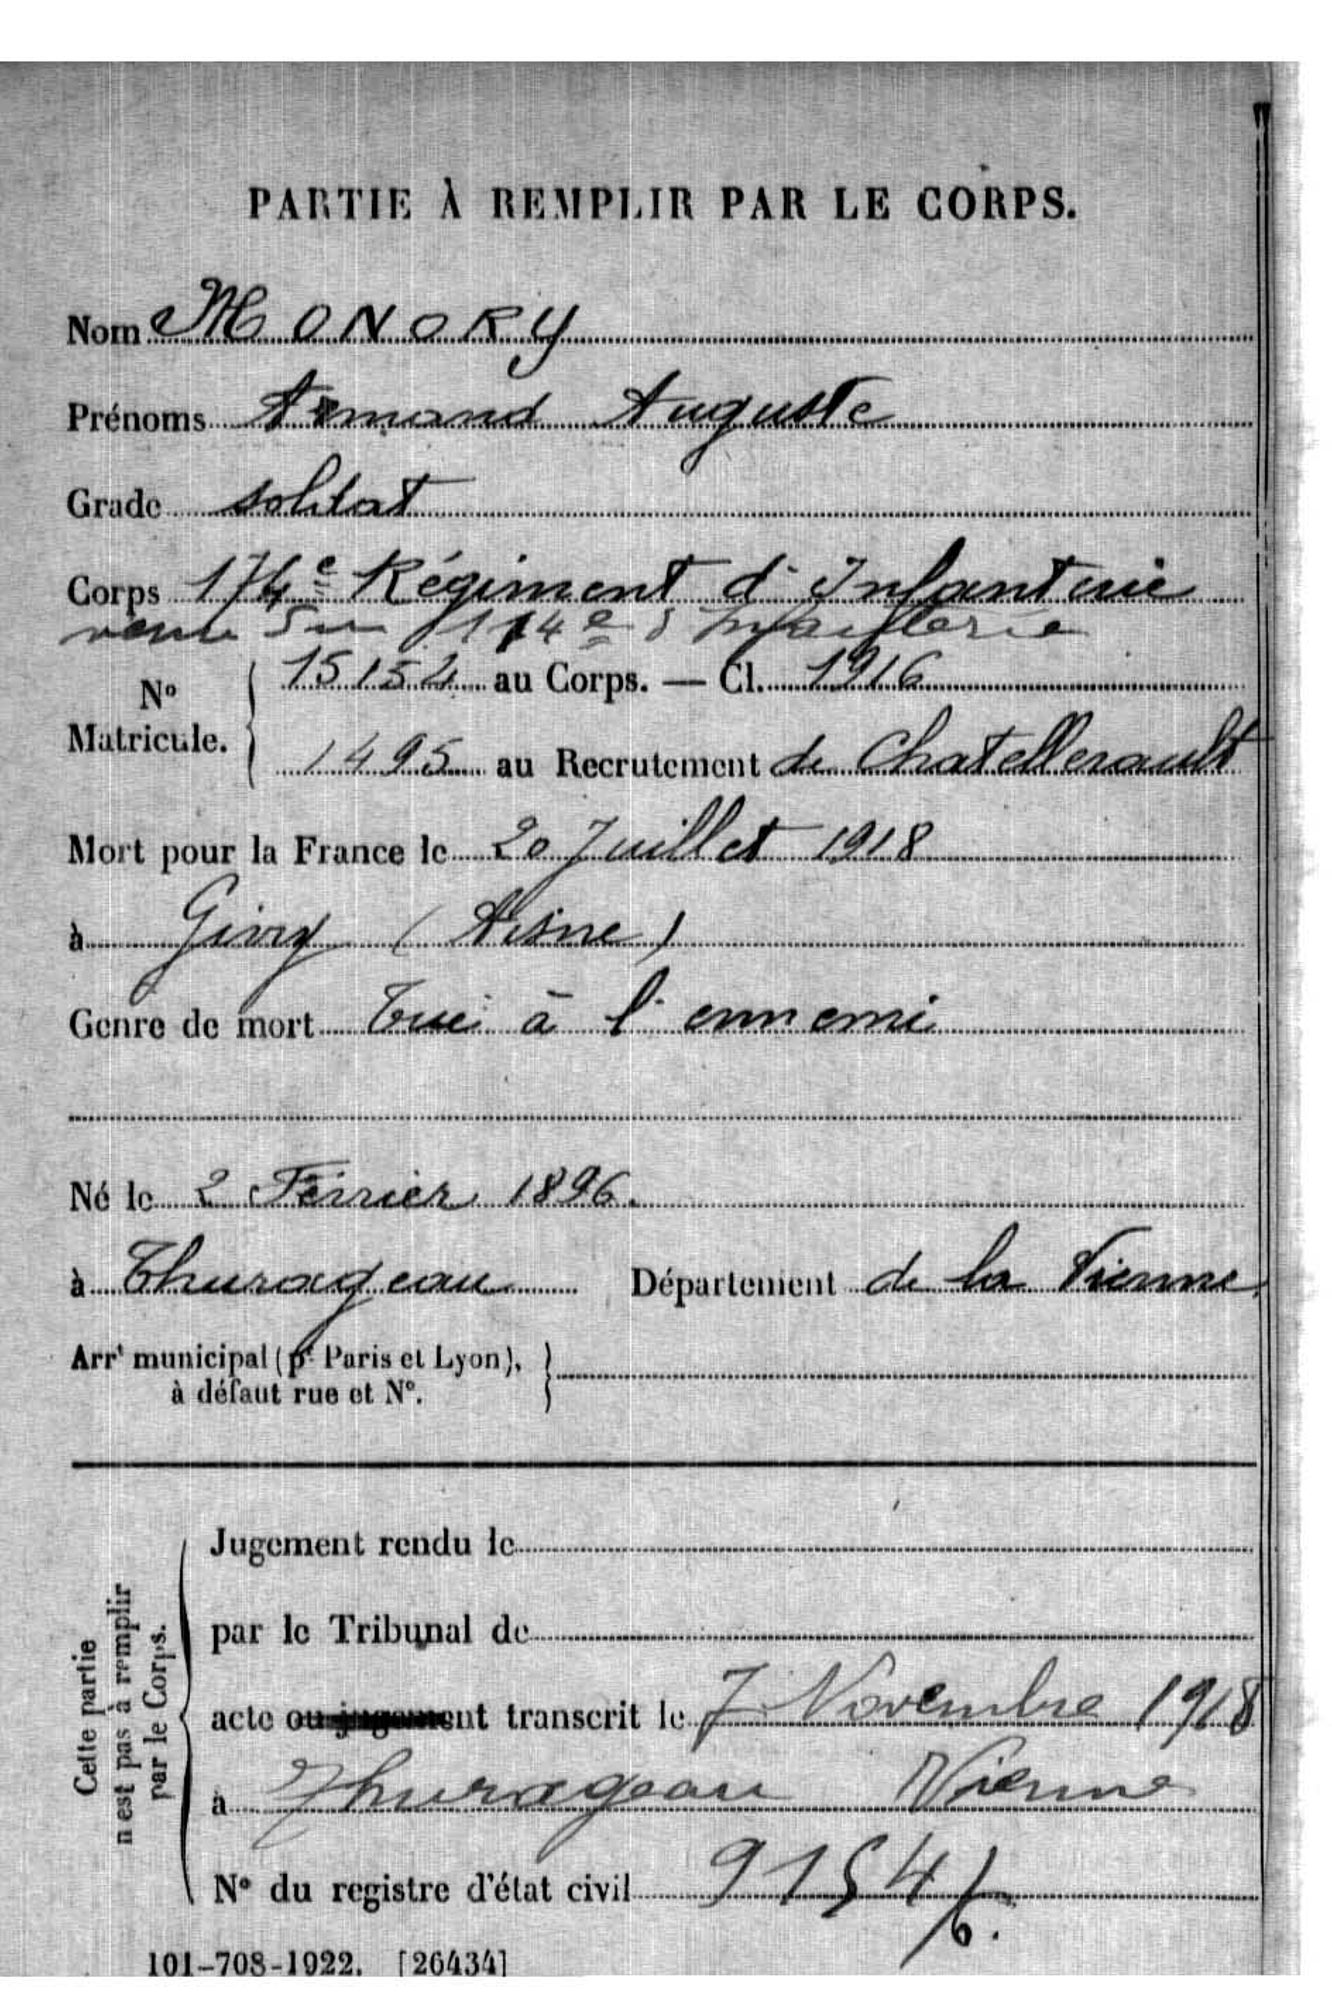 PARTIE À REMPLIR PAR LE CORPS.
Nom MONORY
Prénoms Armand Auguste
Grade soldat
Corps 174e Régiment d'Infanterie
venu du 114e d'Infanterie
No Matricule. 15152 au Corps. — Cl. 1916
1495 au Recrutement de Chatellerault
Mort pour la France le 20 Juillet 1918
à Givry (Aisne)
Genre de mort Tué à l'ennemi
Né le 2 Février 1896.
à Thurageau Département de la Vienne
Arrt municipal (pr Paris et Lyon),
à défaut rue et N°.
Cette partie
n'est pas à remplir
par le Corps.
Jugement rendu le
par le Tribunal de
acte ou jugement transcrit le 7 Novembre 1918
à Thurageau Vienne
N° du registre d'état civil
101-708-1922. [26434]